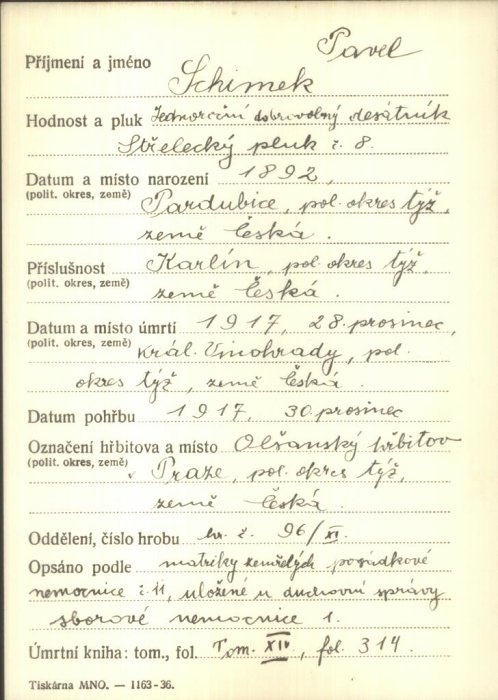 Pavel
Příjmení a jméno
Schimek
Hodnost a pluk Jednoroční dobrovolný desátník
Střelecký pluk č. 8.
Datum a místo narození 1892,
(polit. okres, země) Pardubice, pol. okres týž,
země Česká.
Příslušnost Karlín, pol. okres týž,
(polit. okres, země) země Česká.
Datum a místo úmrtí 1917, 28. prosinec,
(polit. okres, země) král. Vinohrady, pol.
okres týž, země Česká.
Datum pohřbu 1917, 30. prosinec
Označení hřbitova a místo Olšanský hřbitov
(polit. okres, země) v Praze, pol. okres týž,
země Česká.
Oddělení, číslo hrobu hr. č. 96/XI.
Opsáno podle matriky zemřelých posádkové
nemocnice č. 11, uložené u duchovní správy
sborové nemocnice 1.
Úmrtní kniha: tom., fol. Tom. XIV, fol. 314.
Tiskárna MNO. — 1163-36.